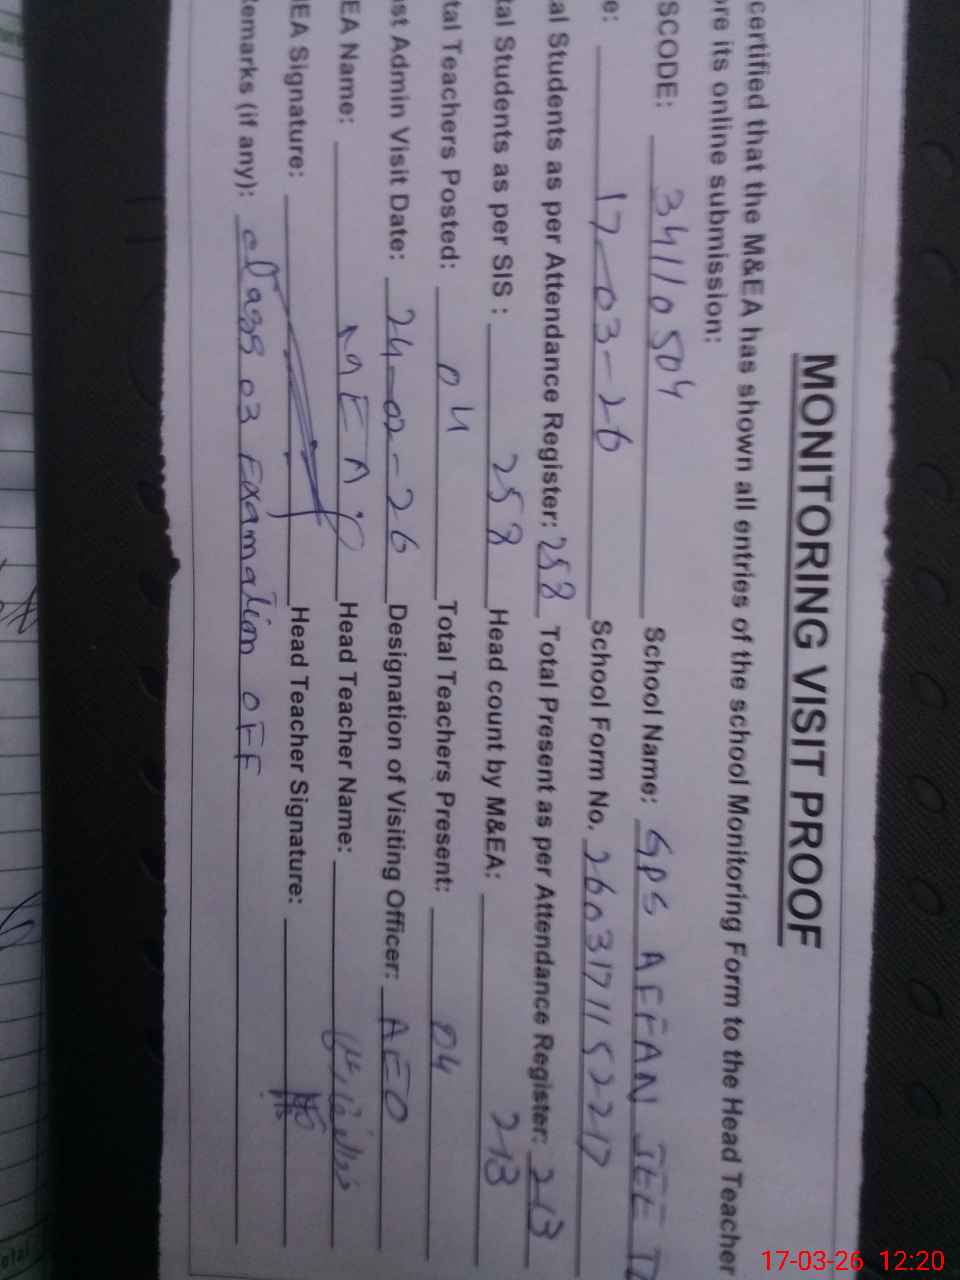 MONITORING VISIT PROOF
certified that the M&EA has shown all entries of the school Monitoring Form to the Head Teacher
re its online submission:
SCODE: 34110504 School Name: GPS AFFAN
e: 17-03-26 School Form No. 2603171152217
al Students as per Attendance Register: 258 Total Present as per Attendance Register: 213
tal Students as per SIS: 258 Head count by M&EA: 213
tal Teachers Posted: 04 Total Teachers Present: 04
st Admin Visit Date: 24-02-26 Designation of Visiting Officer: AEO
EA Name: Head Teacher Name:
EA Signature: Head Teacher Signature:
emarks (if any): class 03 Examation OFF
17-03-26 12:20